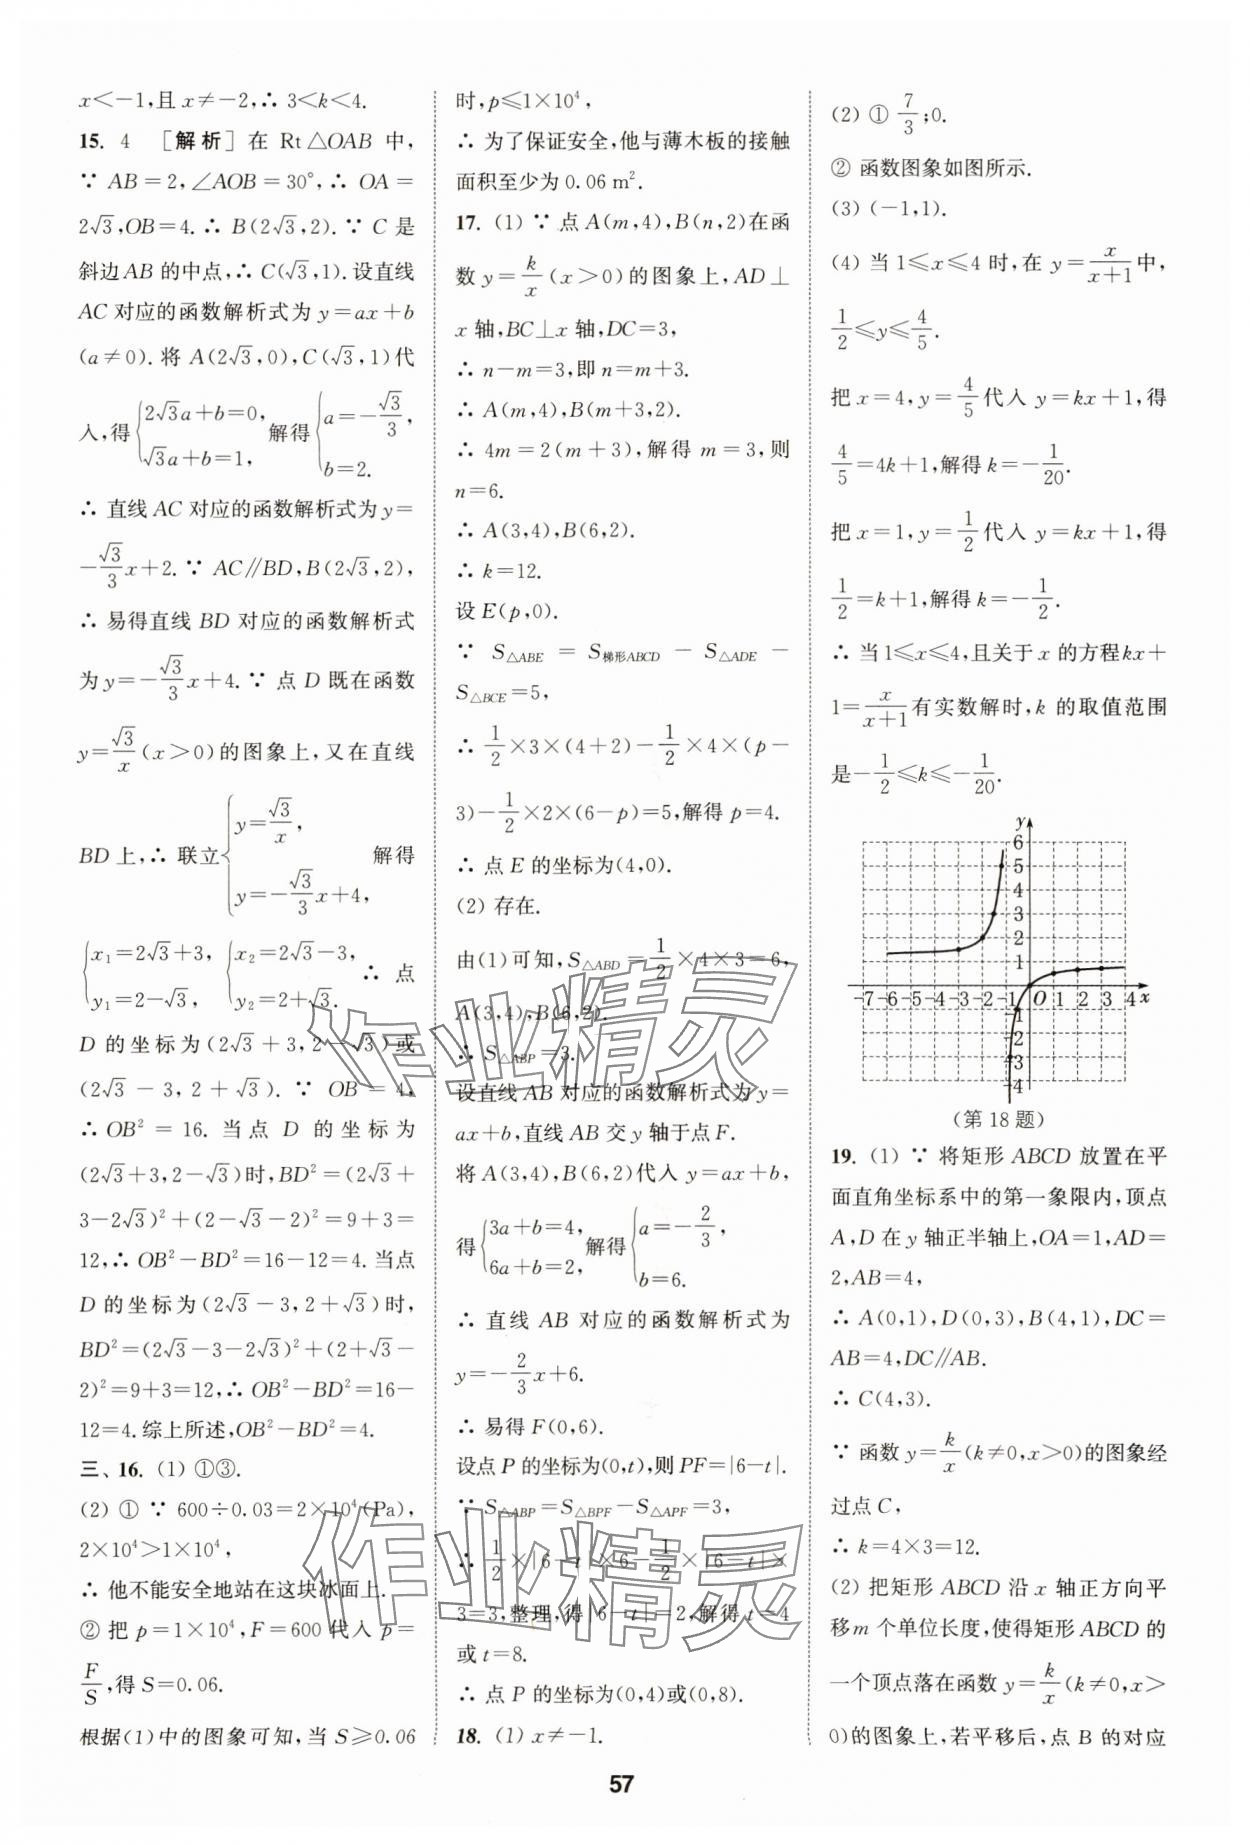 x＜－1,且 x≠－2,∴ 3＜k＜4.
15. 4 ［解析］在 Rt△OAB 中,
∵ AB＝2,∠AOB＝30°,∴ OA＝
2√3,OB＝4.∴ B(2√3,2).∵ C 是
斜边AB 的中点,∴ C(√3,1).设直线
AC 对应的函数解析式为 y＝ax＋b
(a≠0).将 A(2√3,0),C(√3,1)代
入,得{2√3a＋b＝0, √3a＋b＝1, 解得{a＝－√3/3, b＝2.
∴ 直线 AC 对应的函数解析式为 y＝
－√3/3x＋2.∵ AC∥BD,B(2√3,2),
∴ 易得直线 BD 对应的函数解析式
为 y＝－√3/3x＋4.∵ 点 D 既在函数
y＝√3/x(x＞0)的图象上,又在直线
BD 上,∴ 联立{y＝√3/x, y＝－√3/3x＋4, 解得
{x₁＝2√3＋3, y₁＝2－√3, {x₂＝2√3－3, y₂＝2＋√3. ∴ 点
D 的坐标为(2√3＋3,2－√3)或
(2√3－3,2＋√3).∵ OB＝4,
∴ OB²＝16.当点 D 的坐标为
(2√3＋3,2－√3)时,BD²＝(2√3＋
3－2√3)²＋(2－√3－2)²＝9＋3＝
12,∴ OB²－BD²＝16－12＝4.当点
D 的坐标为(2√3－3,2＋√3)时,
BD²＝(2√3－3－2√3)²＋(2＋√3－
2)²＝9＋3＝12,∴ OB²－BD²＝16－
12＝4.综上所述,OB²－BD²＝4.
三、16. (1) ①③.
(2) ① ∵ 600÷0.03＝2×10⁴(Pa),
2×10⁴＞1×10⁴,
∴ 他不能安全地站在这块冰面上.
② 把 p＝1×10⁴,F＝600 代入 p＝
F/S,得 S＝0.06.
根据(1)中的图象可知,当 S≥0.06
时,p≤1×10⁴,
∴ 为了保证安全,他与薄木板的接触
面积至少为 0.06 m².
17. (1) ∵ 点 A(m,4),B(n,2)在函
数 y＝k/x(x＞0)的图象上,AD⊥
x 轴,BC⊥x 轴,DC＝3,
∴ n－m＝3,即 n＝m＋3.
∴ A(m,4),B(m＋3,2).
∴ 4m＝2(m＋3),解得 m＝3,则
n＝6.
∴ A(3,4),B(6,2).
∴ k＝12.
设 E(p,0).
∵ S△ABE ＝ S梯形ABCD － S△ADE －
S△BCE＝5,
∴ 1/2×3×(4＋2)－1/2×4×(p－
3)－1/2×2×(6－p)＝5,解得 p＝4.
∴ 点 E 的坐标为(4,0).
(2) 存在.
由(1)可知,S△ABD＝1/2×4×3＝6,
A(3,4),B(6,2).
∴ S△ABP＝3.
设直线 AB 对应的函数解析式为 y＝
ax＋b,直线 AB 交 y 轴于点 F.
将 A(3,4),B(6,2)代入 y＝ax＋b,
得{3a＋b＝4, 6a＋b＝2, 解得{a＝－2/3, b＝6.
∴ 直线 AB 对应的函数解析式为
y＝－2/3x＋6.
∴ 易得 F(0,6).
设点 P 的坐标为(0,t),则 PF＝|6－t|.
∵ S△ABP＝S△BPF－S△APF＝3,
∴ 1/2×|6－t|×6－1/2×|6－t|×
3＝3,整理,得|6－t|＝2,解得 t＝4
或 t＝8.
∴ 点 P 的坐标为(0,4)或(0,8).
18. (1) x≠－1.
(2) ① 7/3;0.
② 函数图象如图所示.
(3) (－1,1).
(4) 当 1≤x≤4 时,在 y＝x/(x＋1)中,
1/2≤y≤4/5.
把 x＝4,y＝4/5代入 y＝kx＋1,得
4/5＝4k＋1,解得 k＝－1/20.
把 x＝1,y＝1/2代入 y＝kx＋1,得
1/2＝k＋1,解得 k＝－1/2.
∴ 当 1≤x≤4,且关于 x 的方程kx＋
1＝x/(x＋1)有实数解时,k 的取值范围
是－1/2≤k≤－1/20.
y
6
5
4
3
2
1
-7-6-5-4-3-2-1 O 1 2 3 4 x
-1
-2
-3
-4
(第 18 题)
19. (1) ∵ 将矩形 ABCD 放置在平
面直角坐标系中的第一象限内,顶点
A,D 在 y 轴正半轴上,OA＝1,AD＝
2,AB＝4,
∴ A(0,1),D(0,3),B(4,1),DC＝
AB＝4,DC∥AB.
∴ C(4,3).
∵ 函数 y＝k/x(k≠0,x＞0)的图象经
过点 C,
∴ k＝4×3＝12.
(2) 把矩形 ABCD 沿 x 轴正方向平
移 m 个单位长度,使得矩形 ABCD 的
一个顶点落在函数 y＝k/x(k≠0,x＞
0)的图象上,若平移后,点 B 的对应
57
作业精灵
作业精灵